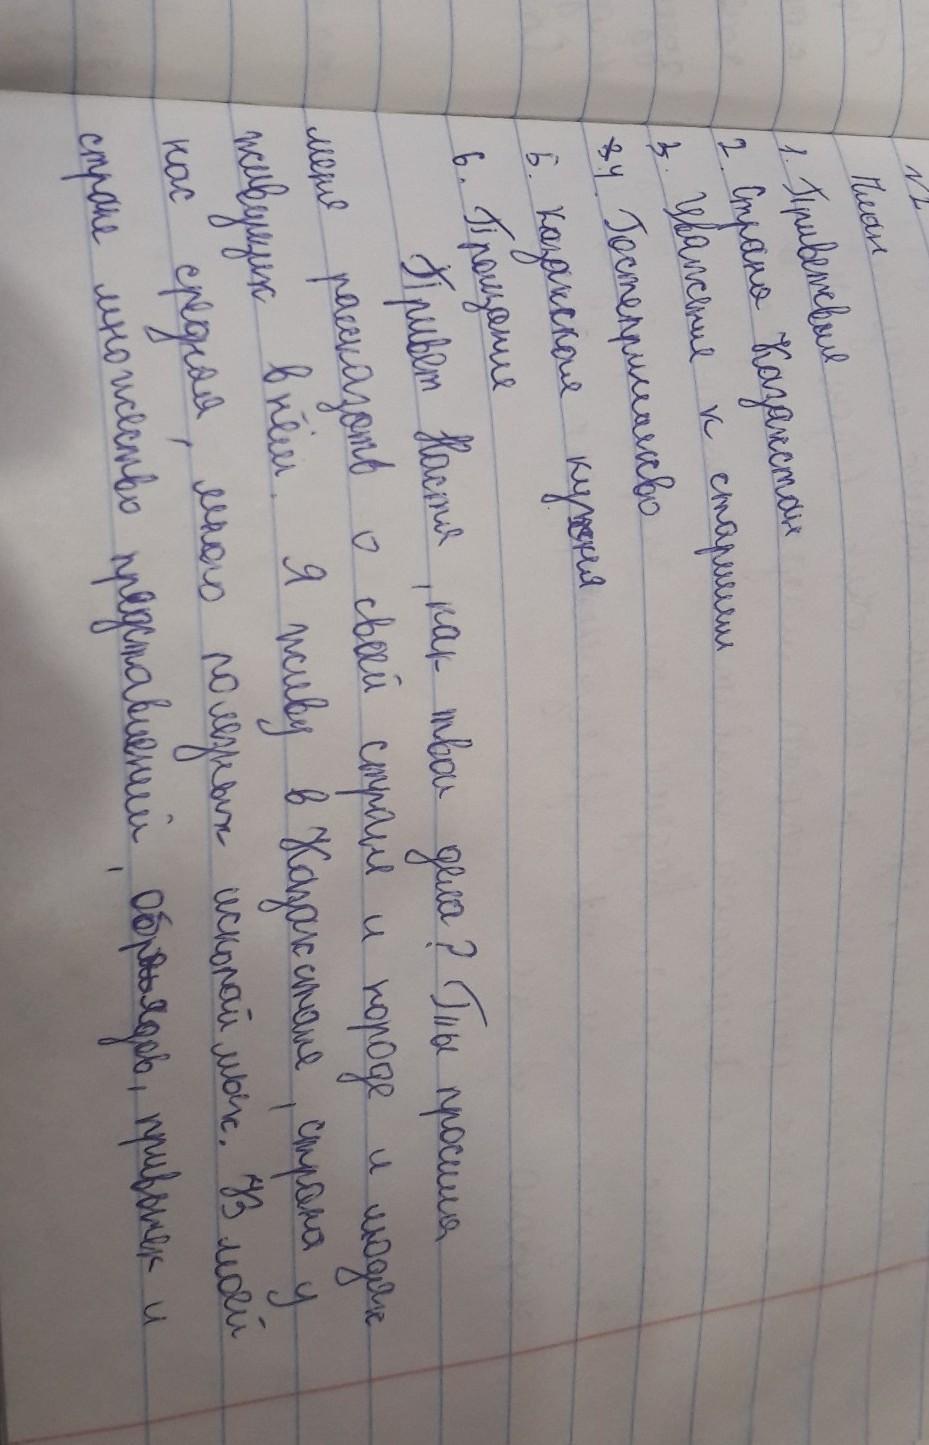 №2
План
1. Приветствие
2. Страна Казахстан
3. Уважение к старшим
4. Гостеприимство
5. Казахская кухня
6. Прощание
Привет Настя, как твои дела? Ты просила
меня рассказать о своей стране и городе и людях
живущих в нём. Я живу в Казахстане, страна у
нас средняя, много полезных ископаймых. УВ моей
стране множество представлений, обрядов, привычек и